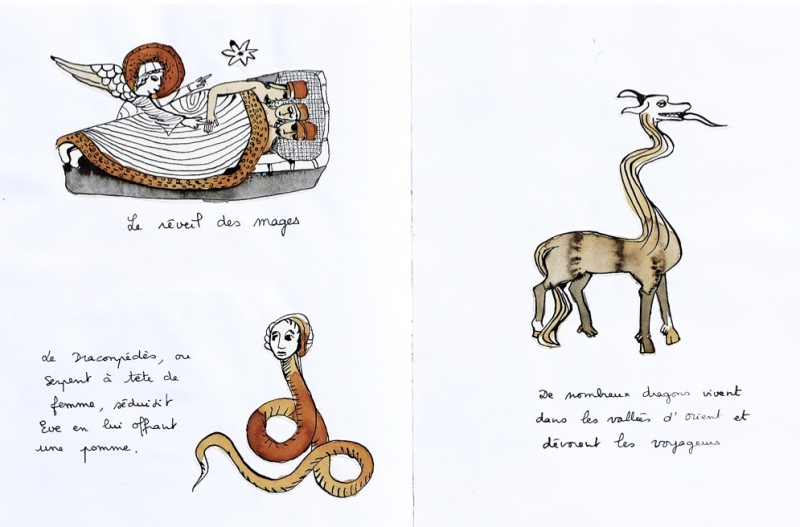 Le réveil des mages
Le Draconpédès, ou
serpent à tête de
femme, séduisit
Eve en lui offrant
une pomme.
De nombreux dragons vivent
dans les vallées d'Orient et
dévorent les voyageurs